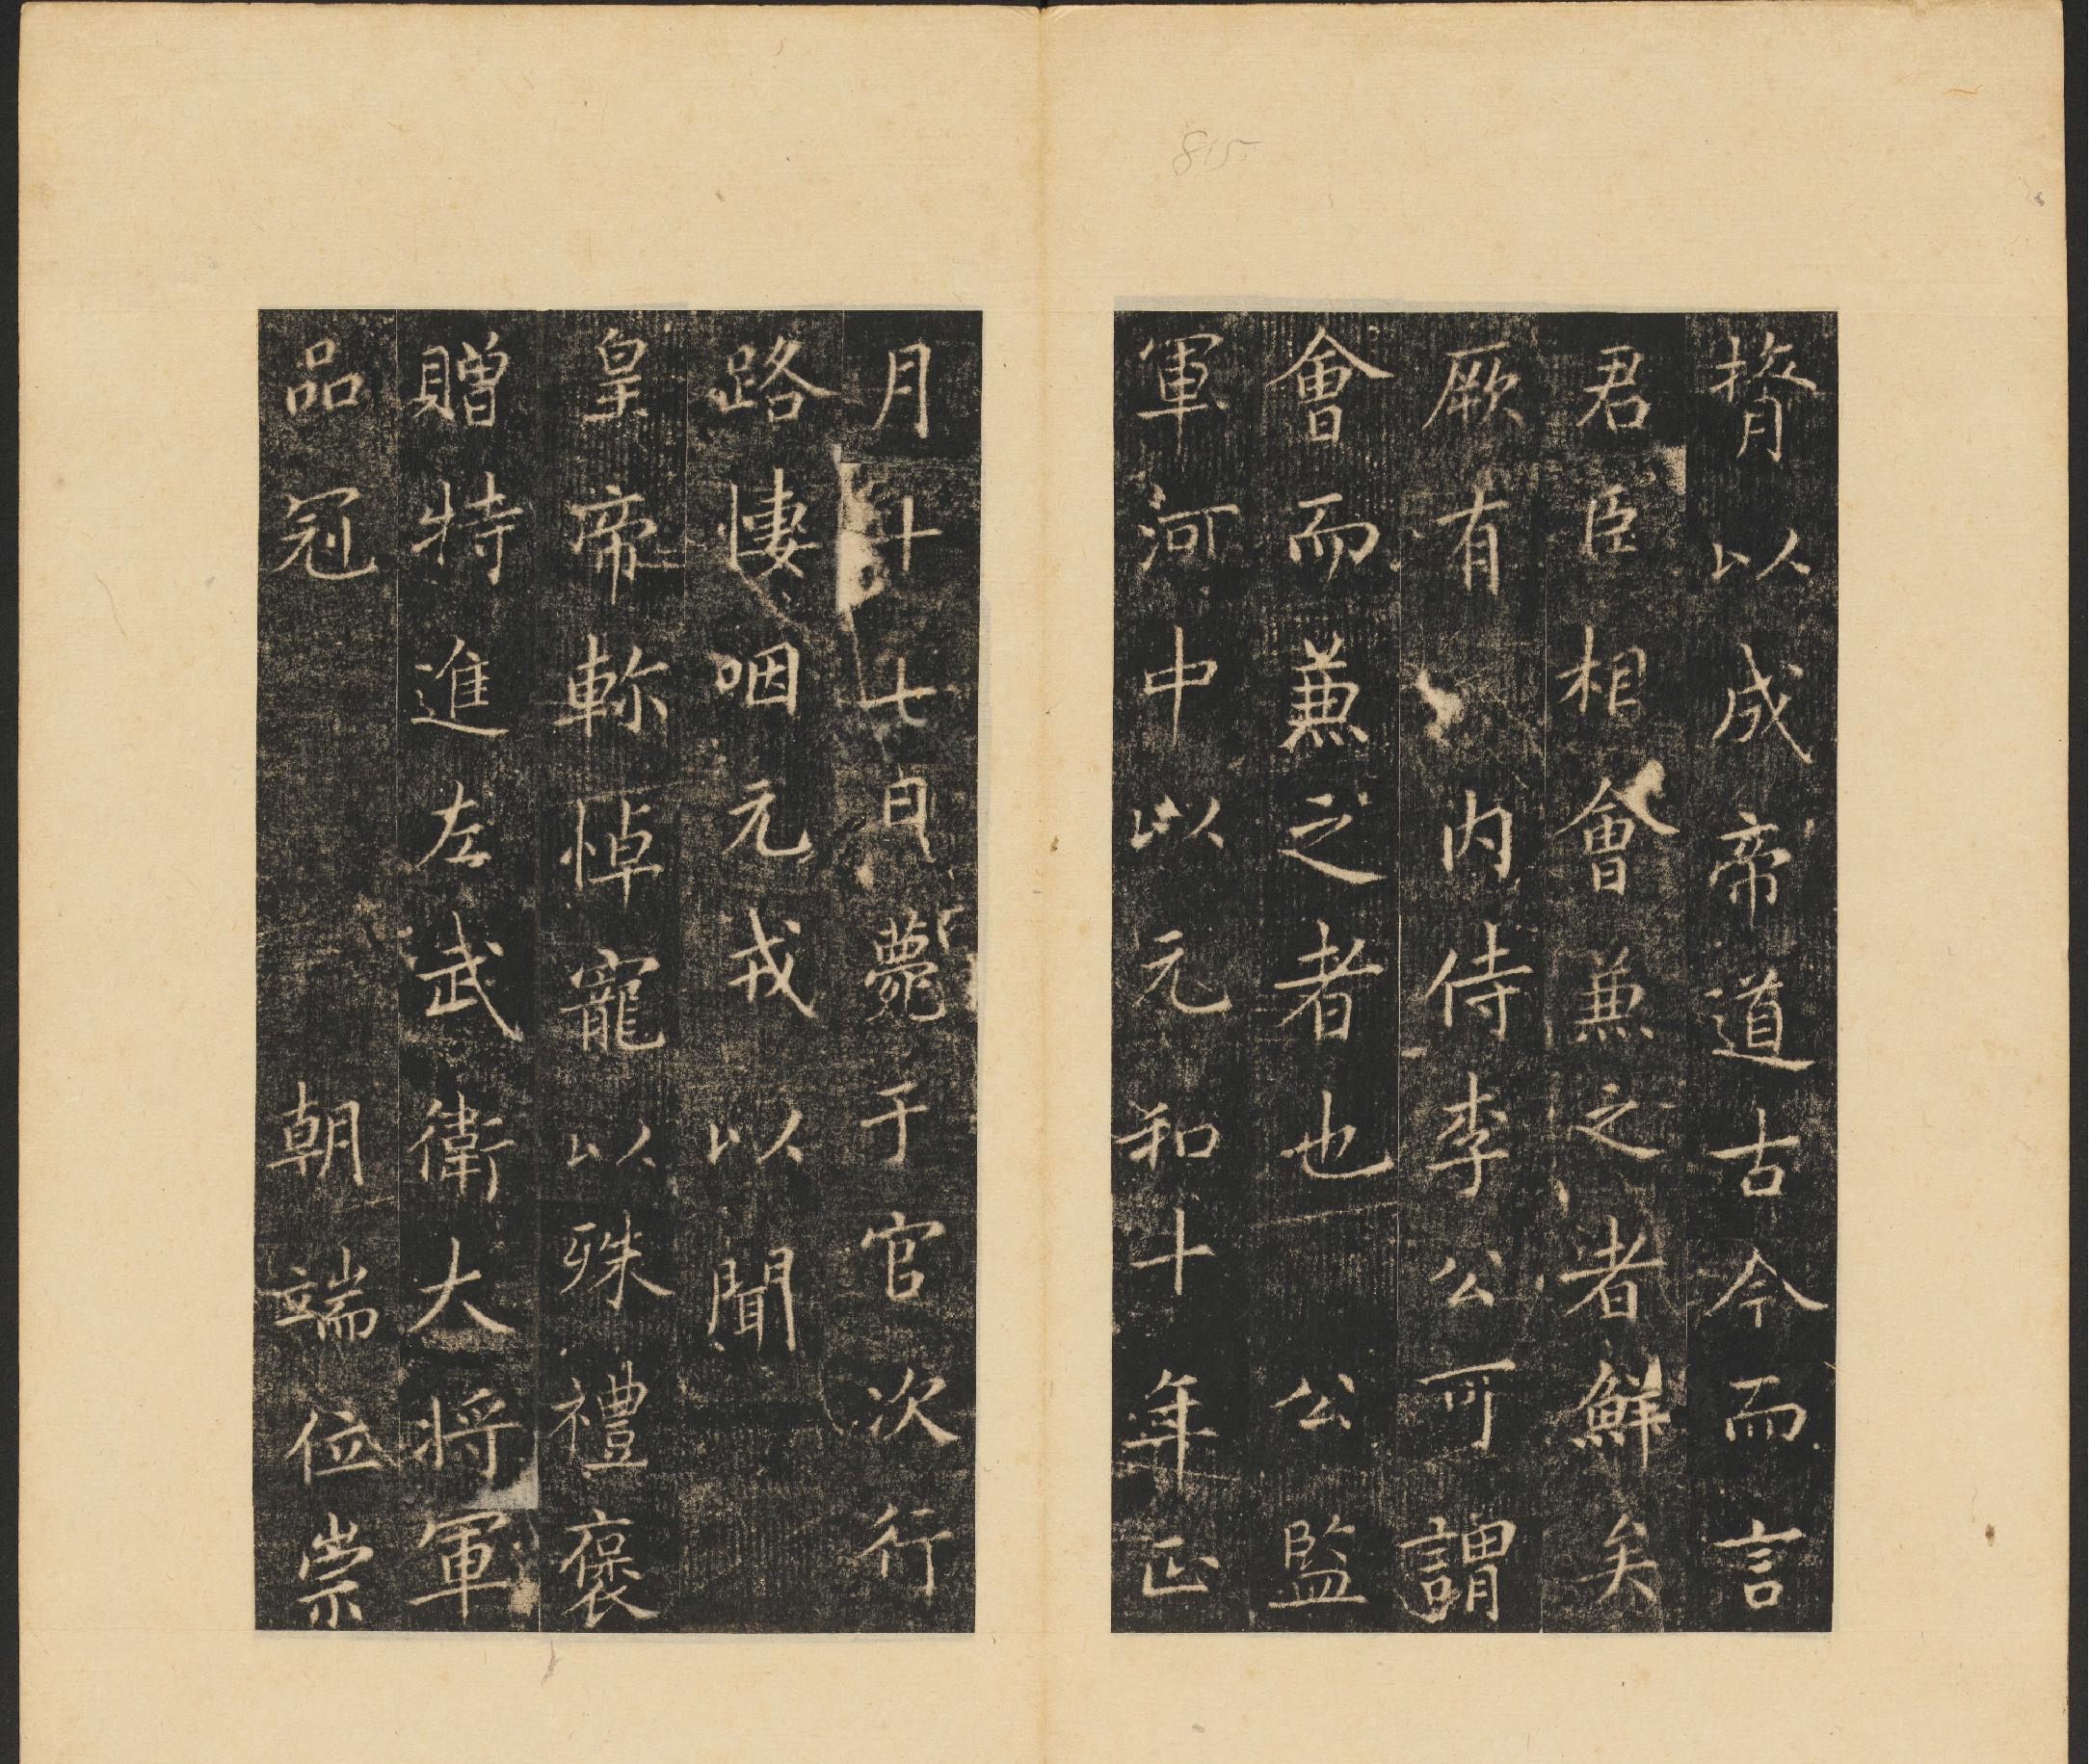 膂以成帝道古今而言
君臣相會兼之者鮮矣
厥有內侍李公可謂
會而兼之者也公監
軍河中以元和十年正
月十七日薨于官次行
路悽咽元戎以聞
皇帝軫悼寵以殊禮褒
贈特進左武衛大將軍
品冠朝端位崇
815